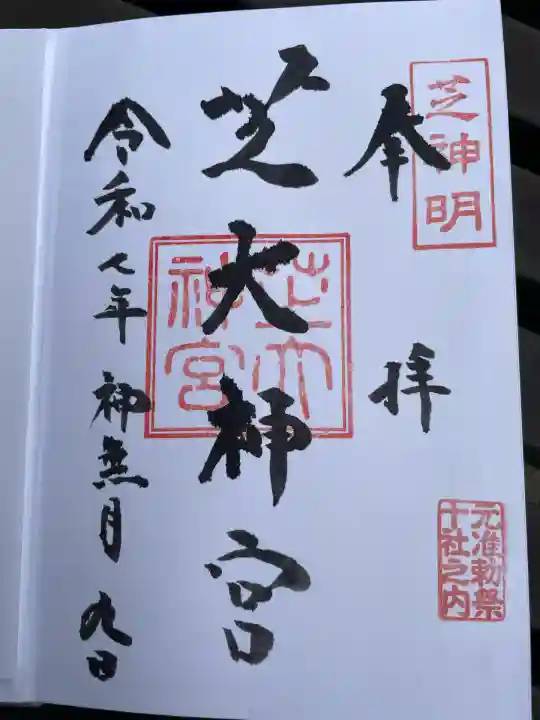 芝神明
奉拝
元准勅祭
十社之内
芝大神宮
芝大
神宮
令和七年 神無月 九日